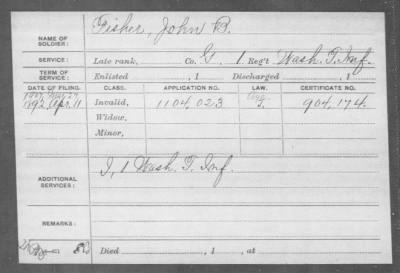 NAME OF SOLDIER: Fisher, John B.
SERVICE: Late rank, Co. G, 1 Reg't Wash. T. Inf.
TERM OF SERVICE: Enlisted , 1 Discharged , 1
DATE OF FILING. CLASS. APPLICATION NO. LAW. CERTIFICATE NO.
1892 Apr. 11 Invalid, 1104,023 904,174.
Widow,
Minor,
ADDITIONAL SERVICES: I, 1 Wash. T. Inf.
REMARKS:
Died , 1 , at